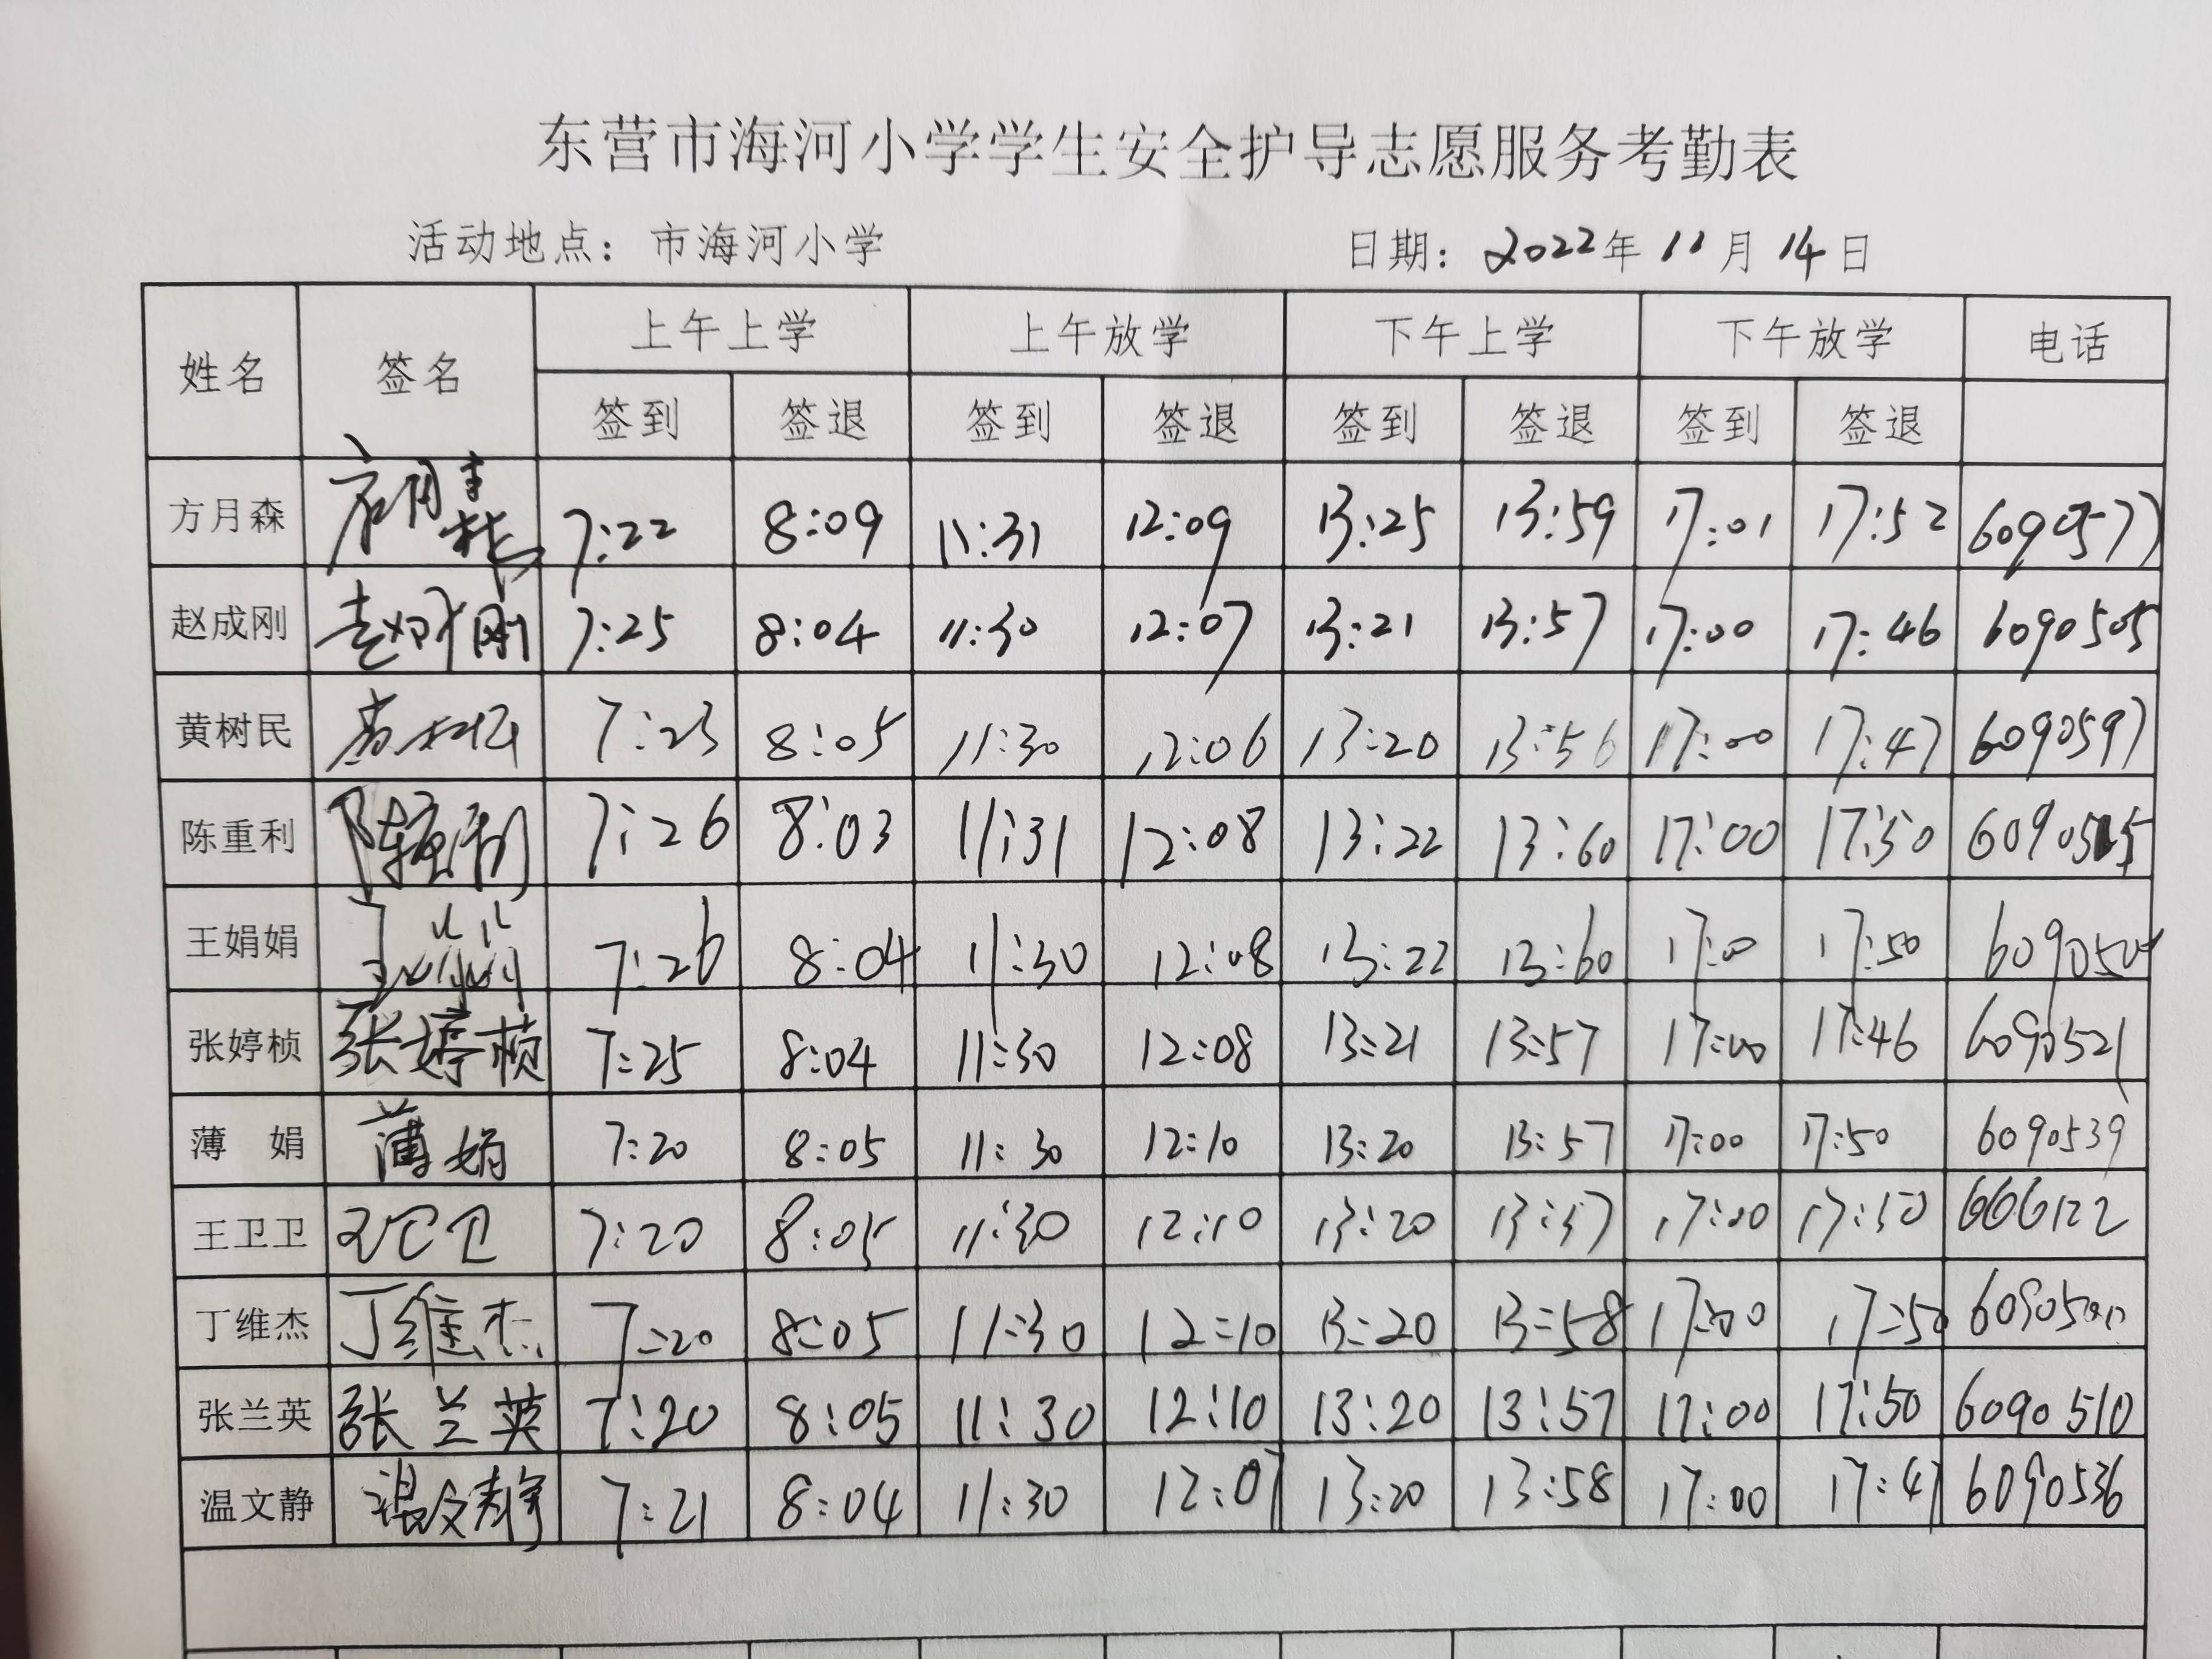 东营市海河小学学生安全护导志愿服务考勤表
活动地点：市海河小学 日期：2022年11月14日
姓名 签名 上午上学 上午放学 下午上学 下午放学 电话
签到 签退 签到 签退 签到 签退 签到 签退
方月森 方月森 7:22 8:09 11:31 12:09 13:25 13:59 17:01 17:52 6090577
赵成刚 赵成刚 7:25 8:04 11:30 12:07 13:21 13:57 17:00 17:46 6090505
黄树民 黄树民 7:23 8:05 11:30 12:06 13:20 13:56 17:00 17:47 6090597
陈重利 陈重利 7:26 8:03 11:31 12:08 13:22 13:60 17:00 17:50
王娟娟 王娟娟 7:26 8:04 11:30 12:08 13:22 13:60 17:00 17:50
张婷桢 张婷桢 7:25 8:04 11:30 12:08 13:21 13:57 17:00 17:46 6090521
薄 娟 薄娟 7:20 8:05 11:30 12:10 13:20 13:57 17:00 17:50 6090539
王卫卫 王卫卫 7:20 8:05 11:30 12:10 13:20 13:57 17:00 17:50 6066122
丁维杰 丁维杰 7:20 8:05 11:30 12:10 13:20 13:58 17:00 17:50
张兰英 张兰英 7:20 8:05 11:30 12:10 13:20 13:57 17:00 17:50 6090510
温文静 温文静 7:21 8:04 11:30 12:07 13:20 13:58 17:00 17:47 6090536